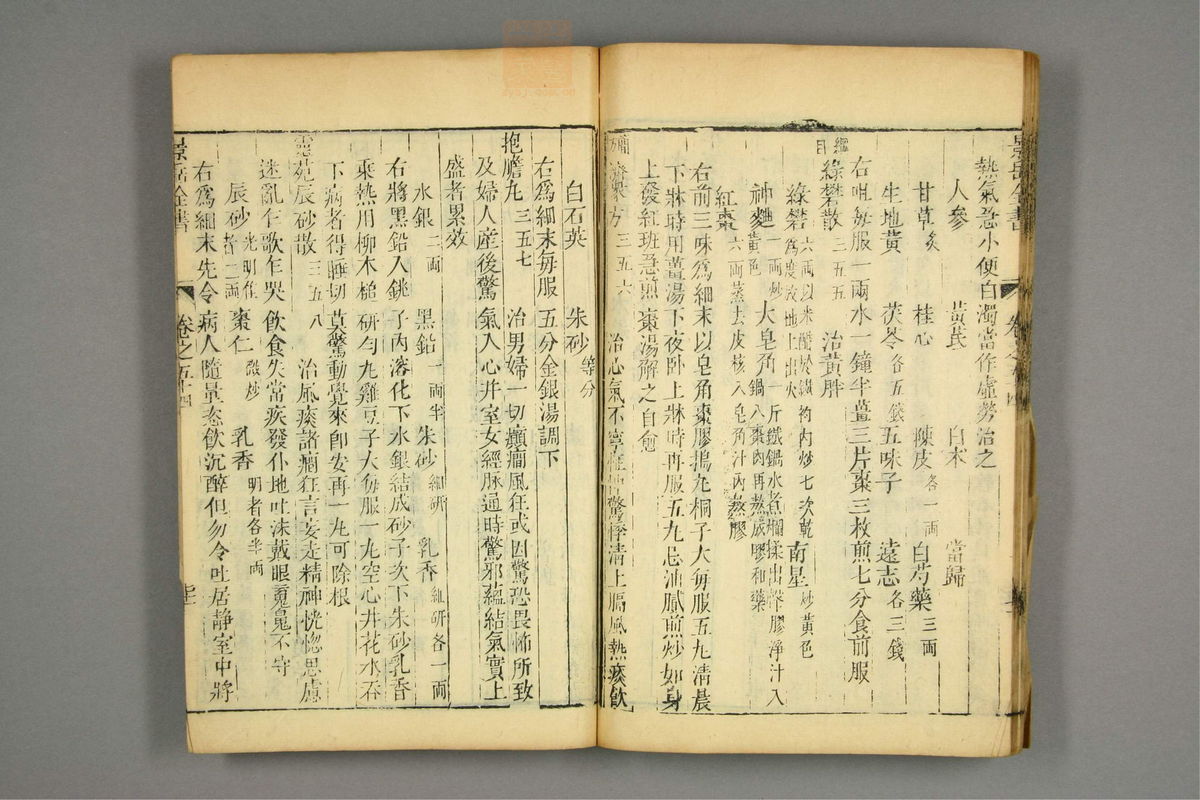 熱氣急小便白濁當作虛勞治之
人參 黃芪 白朮 當歸
甘草炙 桂心 陳皮各一兩 白芍藥三兩
生地黃 茯苓各五錢 五味子 遠志各三錢
右㕮每服一兩水一鐘半薑三片棗三枚煎七分食前服
綠礬散三五五 治黃胖
綠礬六兩以米醋於鍋杓內炒七次乾為度放地上出火 南星炒黃色
神麯一兩炒黃色 大皂角一斤鐵鍋水煮爛揉出渣膠淨汁入鍋入棗肉再熬成膠和藥
紅棗六兩蒸去皮核入皂角汁內熬膠
右前三味為細末以皂角棗膠搗丸桐子大每服五丸清晨
下牀時用薑湯下夜卧上牀時再服五丸忌油膩煎炒如身
上發紅班急煎棗湯解之自愈
三五六 治心氣不寧怔忡驚悸清上膈風熱痰飲
白石英 朱砂等分
右為細末每服五分金銀湯調下
抱膽丸三五七 治男婦一切癲癇風狂或因驚恐畏怖所致
及婦人產後驚氣入心幷室女經脉通時驚邪蘊結氣實上
盛者累效
水銀二兩 黑鉛一兩半 朱砂細研 乳香細研各一兩
右將黑鉛入銚子內溶化下水銀結成砂子次下朱砂乳香
乘熱用柳木槌研勻丸雞豆子大每服一丸空心井花水吞
下病者得睡切莫驚動覺來即安再一丸可除根
靈苑辰砂散三五八 治風痰諸癇狂言妄走精神恍惚思慮
迷亂乍歌乍哭飲食失常疾發仆地吐沫戴眼魂魄不守
辰砂光明佳者二兩 棗仁微炒 乳香明者各半兩
右為細末先令病人隨量恣飲沉醉但勿令吐居靜室中將
景岳全書 卷之五十四